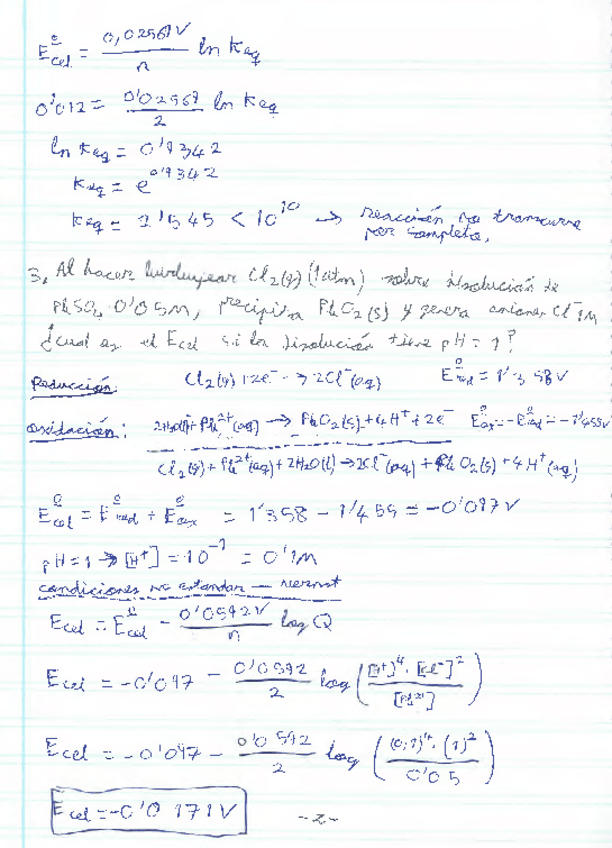 E°cel = 0,02569V / n ln Keq
0'012 = 0'02569 / 2 ln Keq
ln Keq = 0'9342
Keq = e^0'9342
Keq = 2'545 < 10^10 → reacción no transcurre
por completo.
3, Al hacer burbujear Cl2(g) (1atm) sobre disolución de
PbSO4 0'05M, precipita PbO2(s) y genera aniones Cl⁻ 1M
¿cual es el Ecel si la disolución tiene pH = 1?
Reducción: Cl2(g) + 2e⁻ → 2Cl⁻(aq) E°red = 1'358V
oxidación: 2H2O(l) + Pb²⁺(aq) → PbO2(s) + 4H⁺ + 2e⁻ E°ox = -E°red = -1'455V
Cl2(g) + Pb²⁺(aq) + 2H2O(l) → 2Cl⁻(aq) + PbO2(s) + 4H⁺(aq)
E°cel = E°red + E°ox = 1'358 - 1'455 = -0'097V
pH = 1 → [H⁺] = 10⁻¹ = 0'1M
condiciones no estandar — nernst
Ecel = E°cel - 0'0592V / n log Q
Ecel = -0'097 - 0'0592 / 2 log ([H⁺]⁴ · [Cl⁻]² / [Pb²⁺])
Ecel = -0'097 - 0'0592 / 2 log ((0,1)⁴ · (1)² / 0'05)
Ecel = -0'0171V
-2-